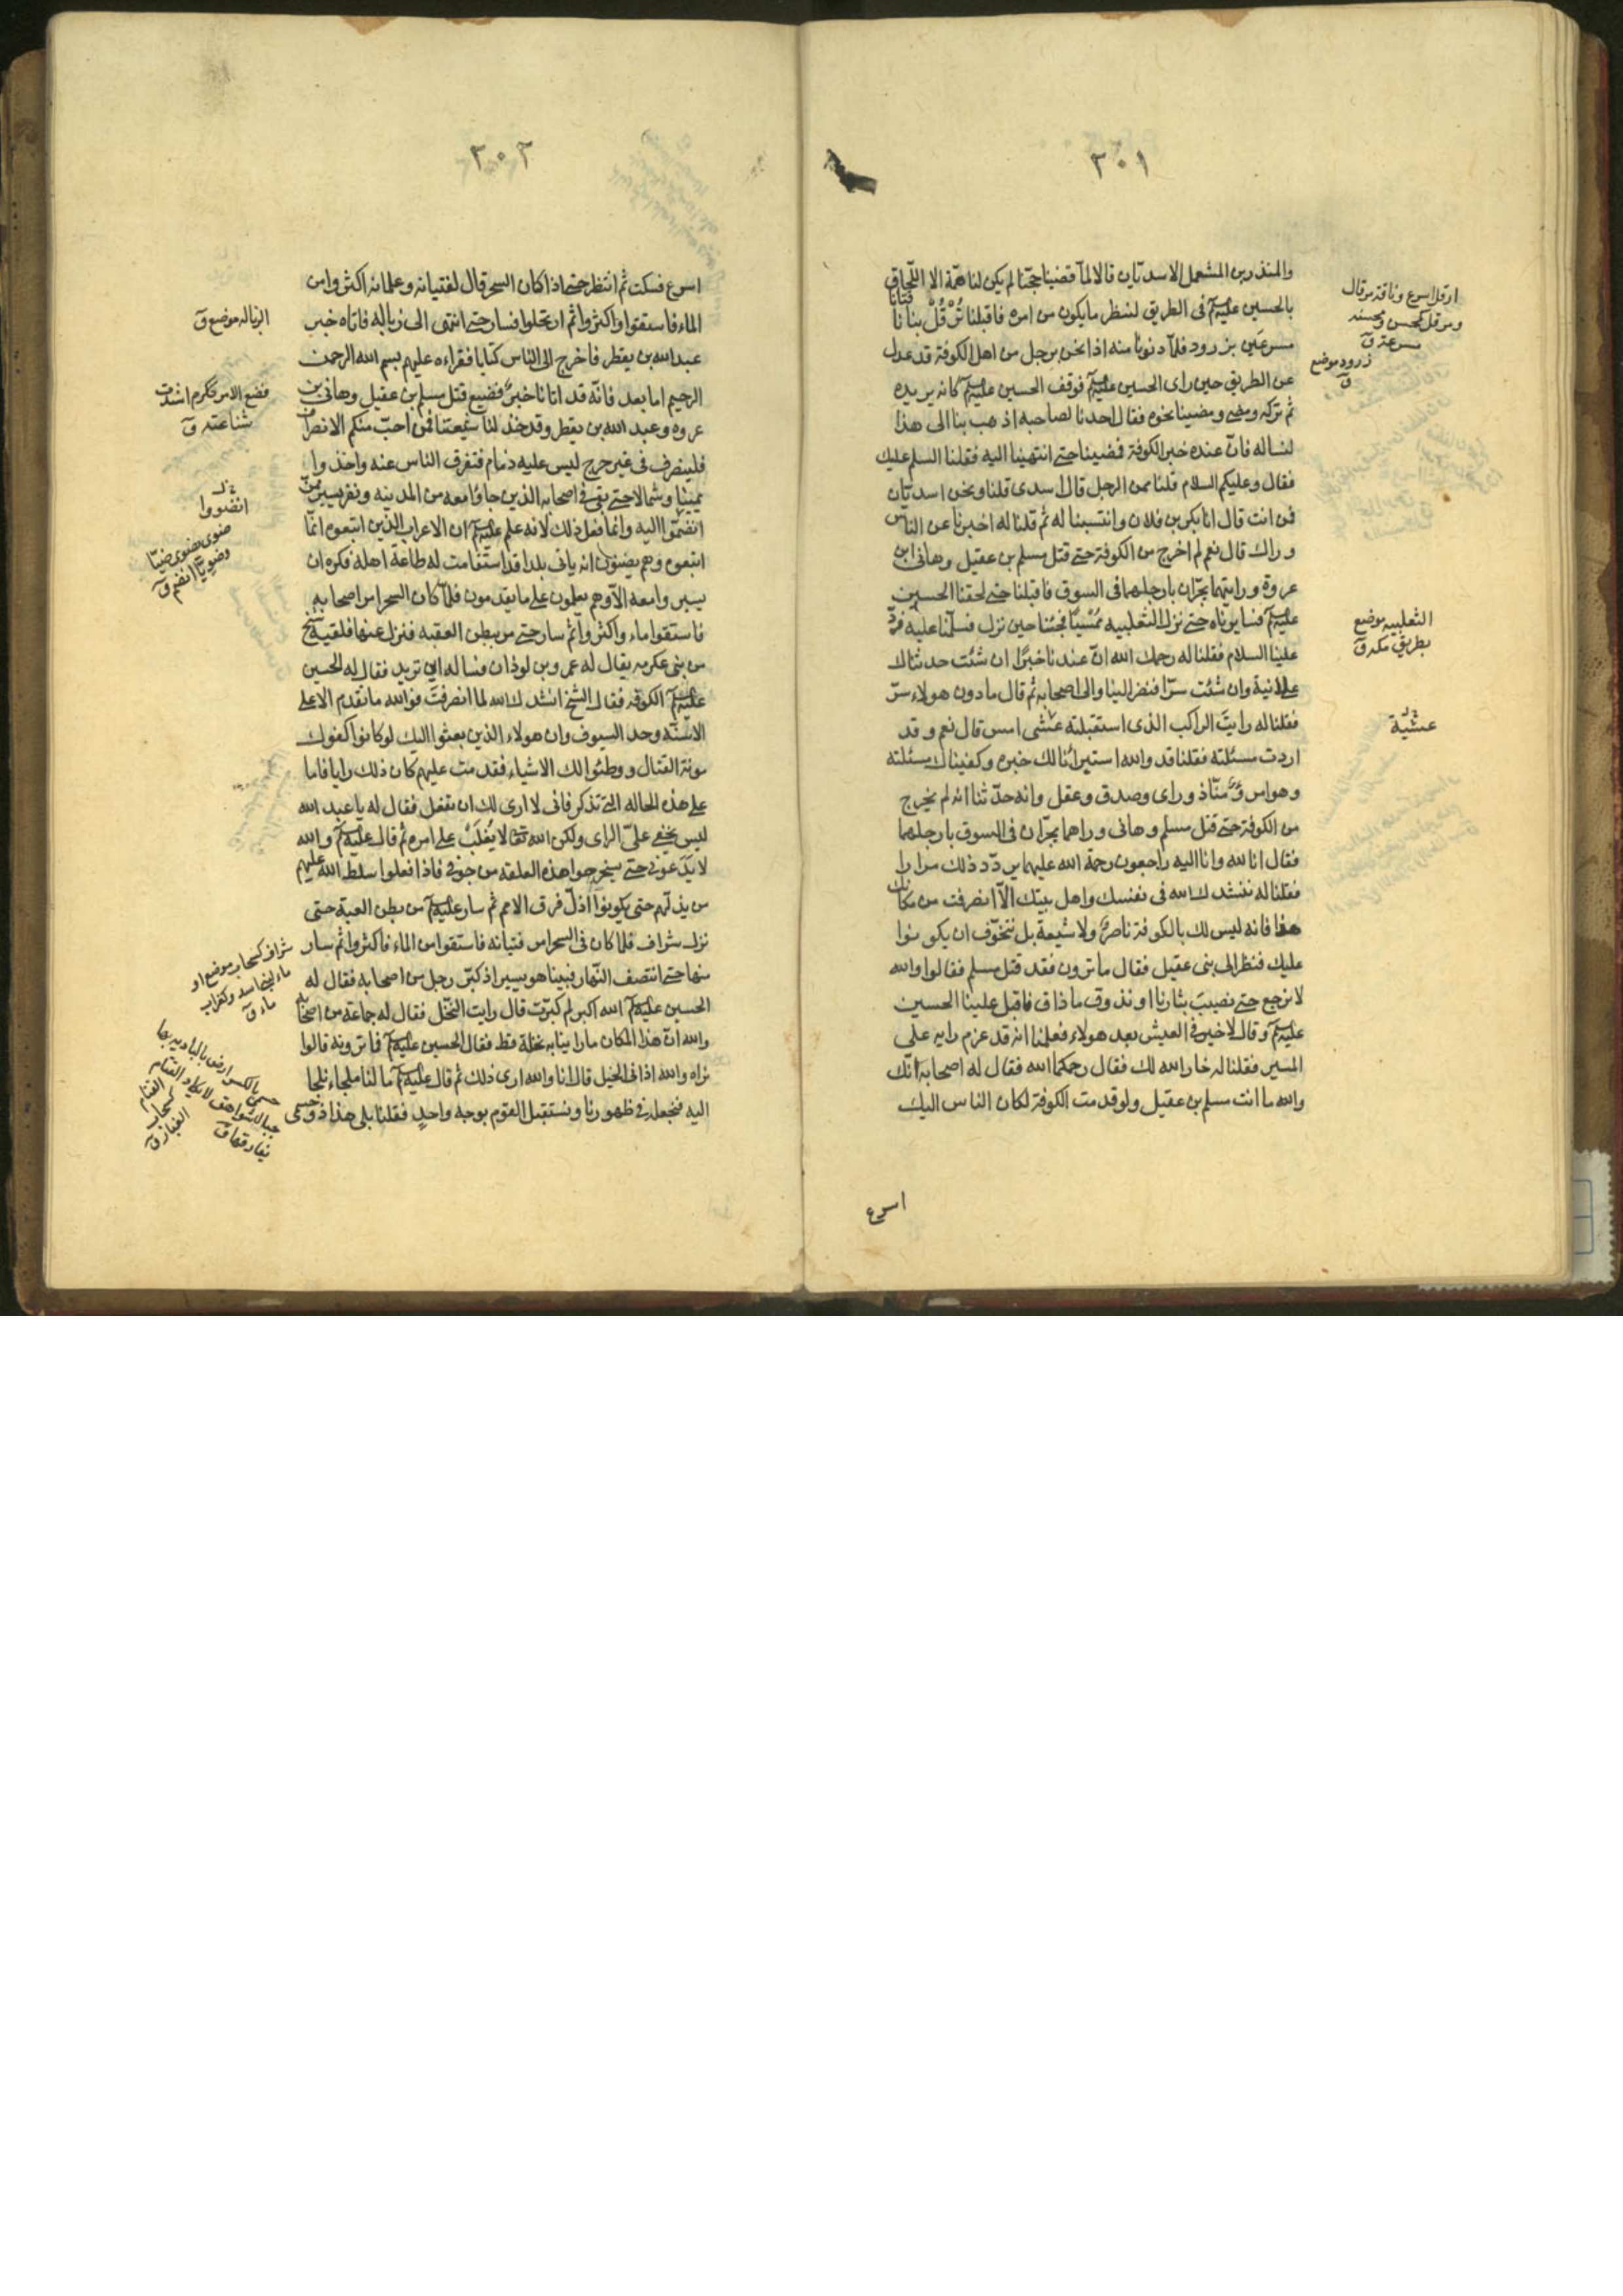 ٣٠١
والمنذر بن المشمعل الاسديان قالا لما قضينا حجّنا لم يكن لنا همّة الا اللّحاق
بالحسين عليه السلم فى الطريق لننظر ما يكون من امره فاقبلنا تُرْقُلُ بنا ناقتانا
مسرعَين بزرود فلمّا دنونا منه اذا نحن برجل من اهل الكوفة قد عدل
عن الطريق حين راى الحسين عليه السلم فوقف الحسين عليه السلم كانه يريده
ثم تركه ومضى ومضينا نحوه فقال احدنا لصاحبه اذهب بنا الى هذا
لنساله فانّ عنده خبر الكوفة فمضينا حتى انتهينا اليه فقلنا السلم عليك
فقال وعليكم السلام قلنا ممن الرجل قال اسدى قلنا ونحن اسديّان
فمن انت قال انا بكر بن فلان وانتسبنا له ثم قلنا له اخبرنا عن الناس
وراك قال نعم لم اخرج من الكوفة حتى قتل مسلم بن عقيل وهانى ابن
عروة ورايتهما يجرّان بارجلهما فى السوق فاقبلنا حتى لحقنا الحسين
عليه السلم فسايرناه حتى نزل الثعلبيه مُمْسِيًا فجئنا حين نزل فسلّمنا عليه فردّ
علينا السلام فقلنا له رحمك الله انّ عندنا خبرًا ان شئت حدثناك
علانية وان شئت سرّا فنظر الينا والى اصحابه ثم قال ما دون هولاء سرّ
فقلنا له رايتَ الراكب الذى استقبلته عشى امس قال نعم وقد
اردت مسئلته فقلنا قد والله استبرأنا لك خبره وكفيناك مسئلته
وهو امرؤٌ منّا ذو راى وصدق وعقل وانه حدّثنا انه لم يخرج
من الكوفة حتى قتل مسلم وهانى وراهما يجرّان فى السوق بارجلهما
فقال انا لله وانا اليه راجعون رحمة الله عليهما يردّد ذلك مرارا
فقلنا له ننشدك الله فى نفسك واهل بيتك الاّ انصرفت من مكانك
هذا فانه ليس لك بالكوفة ناصرٌ ولا شيعة بل نتخوّف ان يكونوا
عليك فنظر الى بنى عقيل فقال ما ترون فقد قتل مسلم فقالوا والله
لا نرجع حتى نصيب بثارنا او نذوق ما ذاق فاقبل علينا الحسين
عليه السلم وقال لا خير فى العيش بعد هولاء فعلمنا انه قد عزم رايه على
المسير فقلنا له خار الله لك فقال رحمكما الله فقال له اصحابه انّك
والله ما انت مسلم بن عقيل ولو قدمت الكوفة لكان الناس اليك
اسرع
ارقل اسرع وناقة مرقال
ومرقل كمحسن ومحسنه
مسرعة ق
زرود موضع
ق
الثعلبيه موضع
بطريق مكه ق
عشيّة
٣٠٢
اسرع فسكت ثم انتظر حتى اذا كان السحر قال لفتيانه وغلمانه اكثروا من
الماء فاستقوا واكثروا ثم ارتحلوا فسار حتى انتهى الى زباله فاتاه خبر
عبد الله بن يقطر فاخرج الى الناس كتابا فقراءه عليهم بسم الله الرحمن
الرحيم اما بعد فانّه قد اتانا خبرٌ فضيع قتل مسلم بن عقيل وهانى بن
عروه وعبد الله بن يقطر وقد خذلنا شيعتنا فمن احبّ منكم الانصراف
فلينصرف فى غير حرج ليس عليه ذمام فتفرق الناس عنه واخذوا
يمينا وشمالا حتى بقى فى اصحابه الذين جاؤا معه من المدينه ونفر يسير ممن
انضمّوا اليه وانما فعل ذلك لانه علم عليه السلم ان الاعراب الذين اتبعوه انما
اتبعوه وهم يضنون انه ياتى بلدا قد استقامت له طاعة اهله فكره ان
يسيروا معه الاّ وهم يعلمون على ما يقدمون فلمّا كان السحر امر اصحابه
فاستقوا ماء واكثروا ثم سار حتى مر ببطن العقبه فنزل عنها فلقيه شيخ
من بنى عكرمه يقال له عمرو بن لوذان فساله اين تريد فقال له الحسين
عليه السلم الكوفه فقال الشيخ انشدك الله لما انصرفتَ فوالله ما تقدم الا على
الاسنّه وحد السيوف وان هولاء الذين بعثوا اليك لو كانوا كفوك
مونة القتال ووطئوا لك الاشياء فقدمت عليهم كان ذلك رايا فاما
على هذه الحاله التى تذكر فانى لا ارى لك ان تفعل فقال له يا عبد الله
ليس يخفى علىّ الراى ولكن الله تعالى لا يُغلَبُ على امره ثم قال عليه السلم والله
لا يدَعونى حتى يستخرجوا هذه العلقه من جوفى فاذا فعلوا سلط الله عليهم
من يذلّهم حتى يكونوا اذلّ فرق الامم ثم سار عليه السلم من بطن العبة حتى
نزل شراف فلما كان فى السحر امر فتيانه فاستقوا من الماء فاكثروا ثم سار
منها حتى انتصف النّهار فبينا هو يسير اذ كبّر رجل من اصحابه فقال له
الحسين عليه السلم الله اكبر لم كبّرت قال رايت النخل فقال له جماعة من اصحابه
والله انّ هذا المكان ما راينا به نخلة قط فقال الحسين عليه السلم فما ترونه قالوا
نراه والله اذان الخيل قال انا والله ارى ذلك ثم قال عليه السلم ما لنا ملجاء نلجا
اليه فنجعله فى ظهورنا ونستقبل القوم بوجه واحدٍ فقلنا بلى هذا ذو حسمى
الزباله موضع ق
فضع الامر فكرم اشدت
شناعته ق
انضووا
ضوى يضوى ضيّا
وضويّا انضم ق
شراف كسحاب موضع او
ماء لبنى اسد وكغراب
ماء ق
حسمى بالكسر ارض بالباديه بها
جبال شواهق لا يكاد القتام
يفارقها ق
القتام
كسحاب
الغبار ق